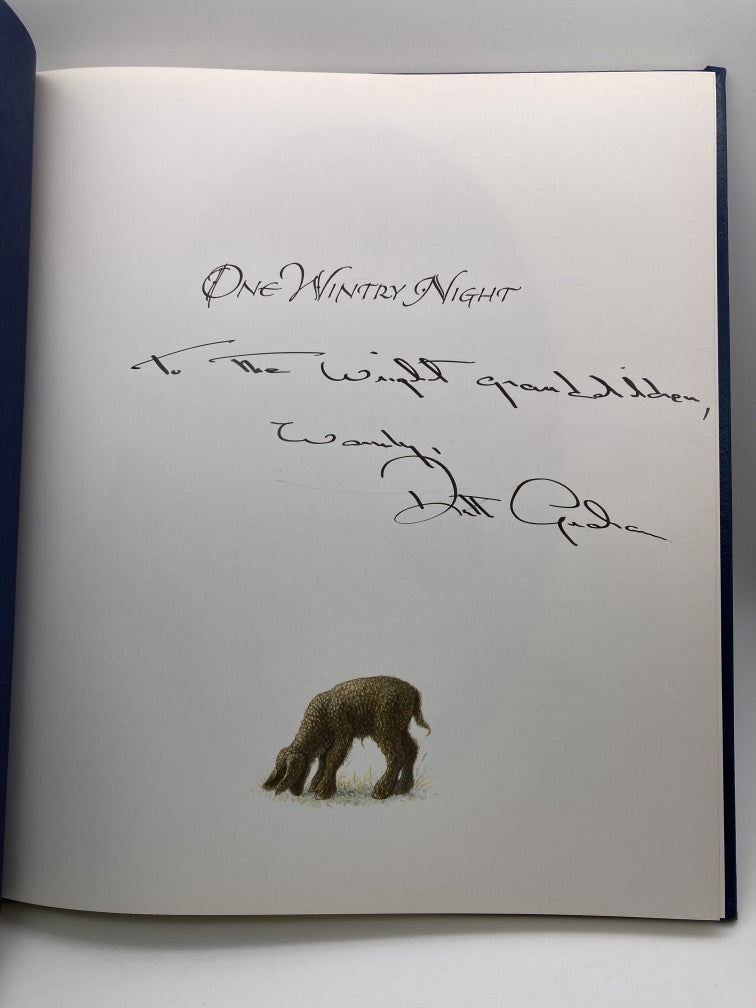 ONE WINTRY NIGHT
To The Wright grandchildren,
Warmly,
Ruth Graham